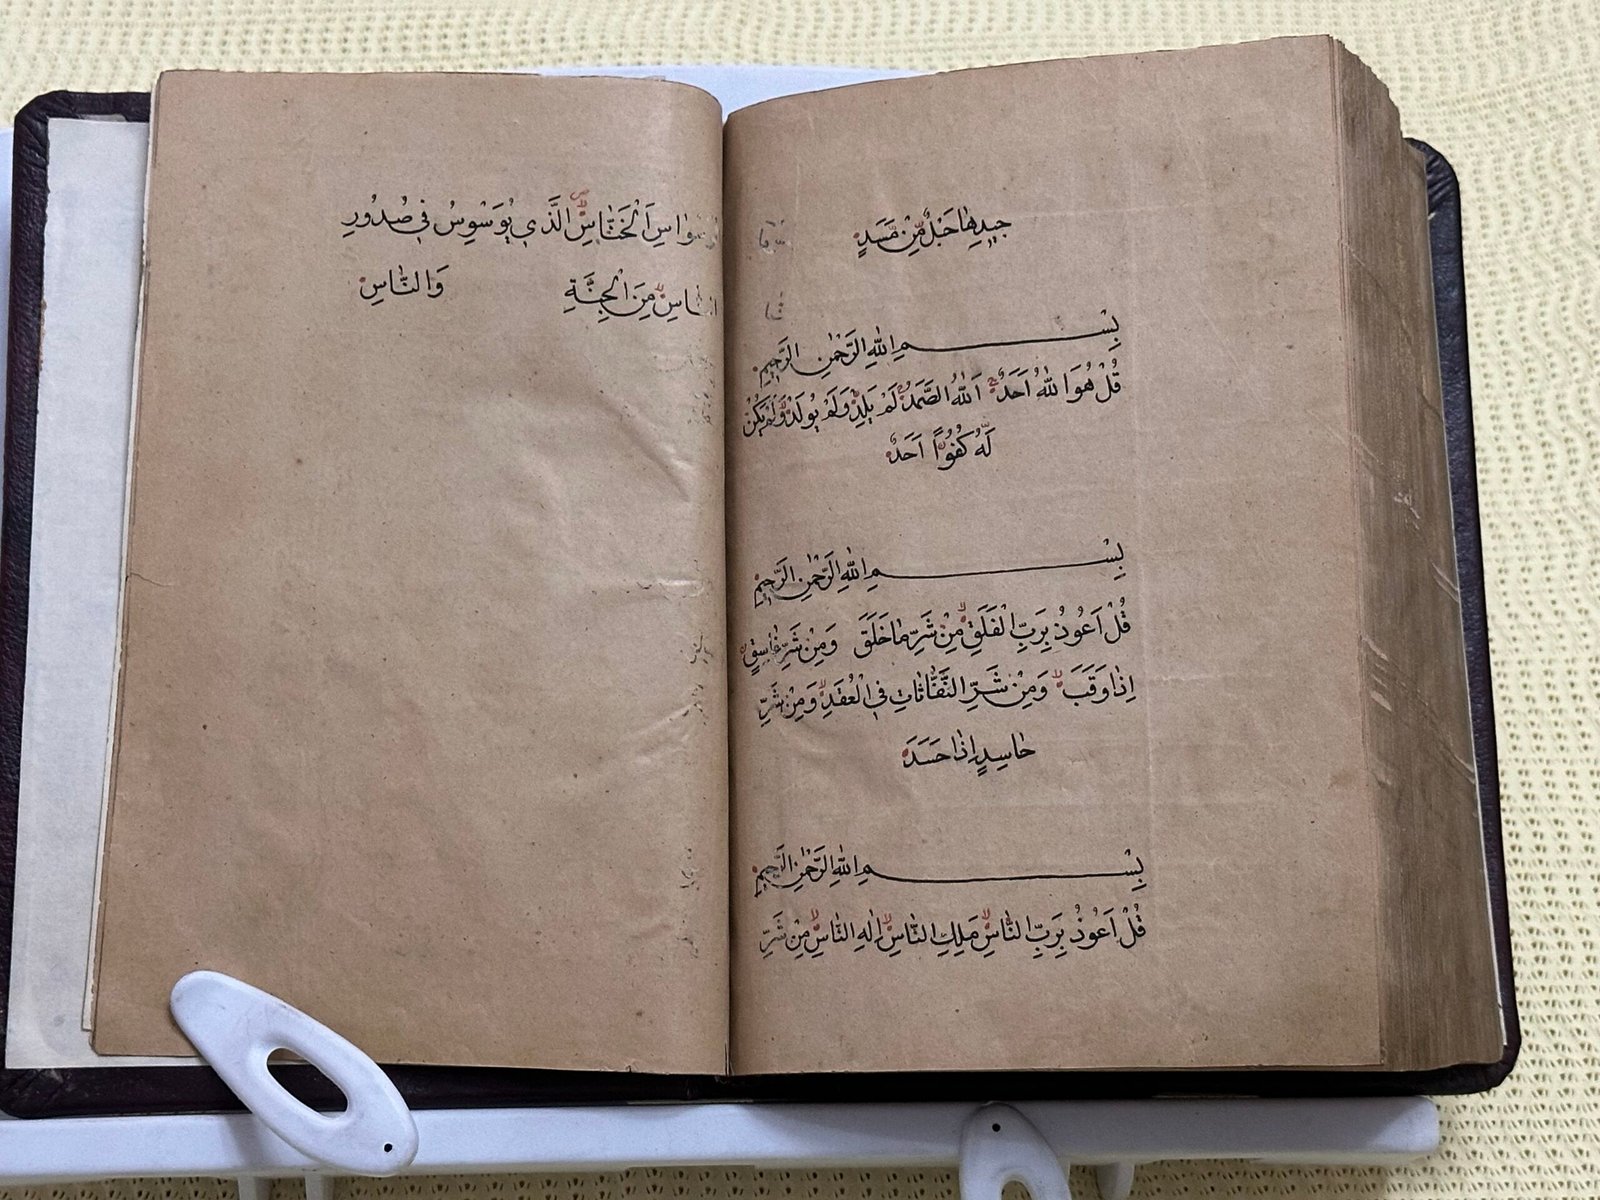 جِيدِهَا حَبْلٌ مِّنْ مَّسَدٍ
بِسْمِ اللهِ الرَّحْمٰنِ الرَّحِيْمِ
قُلْ هُوَ اللهُ اَحَدٌ اَللهُ الصَّمَدُ لَمْ يَلِدْ وَلَمْ يُولَدْ وَلَمْ يَكُنْ
لَّهُ كُفُوًا اَحَدٌ
بِسْمِ اللهِ الرَّحْمٰنِ الرَّحِيْمِ
قُلْ اَعُوْذُ بِرَبِّ الْفَلَقِ مِنْ شَرِّ مَا خَلَقَ وَمِنْ شَرِّ غَاسِقٍ
اِذَا وَقَبَ وَمِنْ شَرِّ النَّفّٰثَاتِ فِي الْعُقَدِ وَمِنْ شَرِّ
حَاسِدٍ اِذَا حَسَدَ
بِسْمِ اللهِ الرَّحْمٰنِ الرَّحِيْمِ
قُلْ اَعُوْذُ بِرَبِّ النَّاسِ مَلِكِ النَّاسِ اِلٰهِ النَّاسِ مِنْ شَرِّ
الْخَنَّاسِ الَّذِي يُوَسْوِسُ فِي صُدُوْرِ
النَّاسِ مِنَ الْجِنَّةِ وَالنَّاسِ